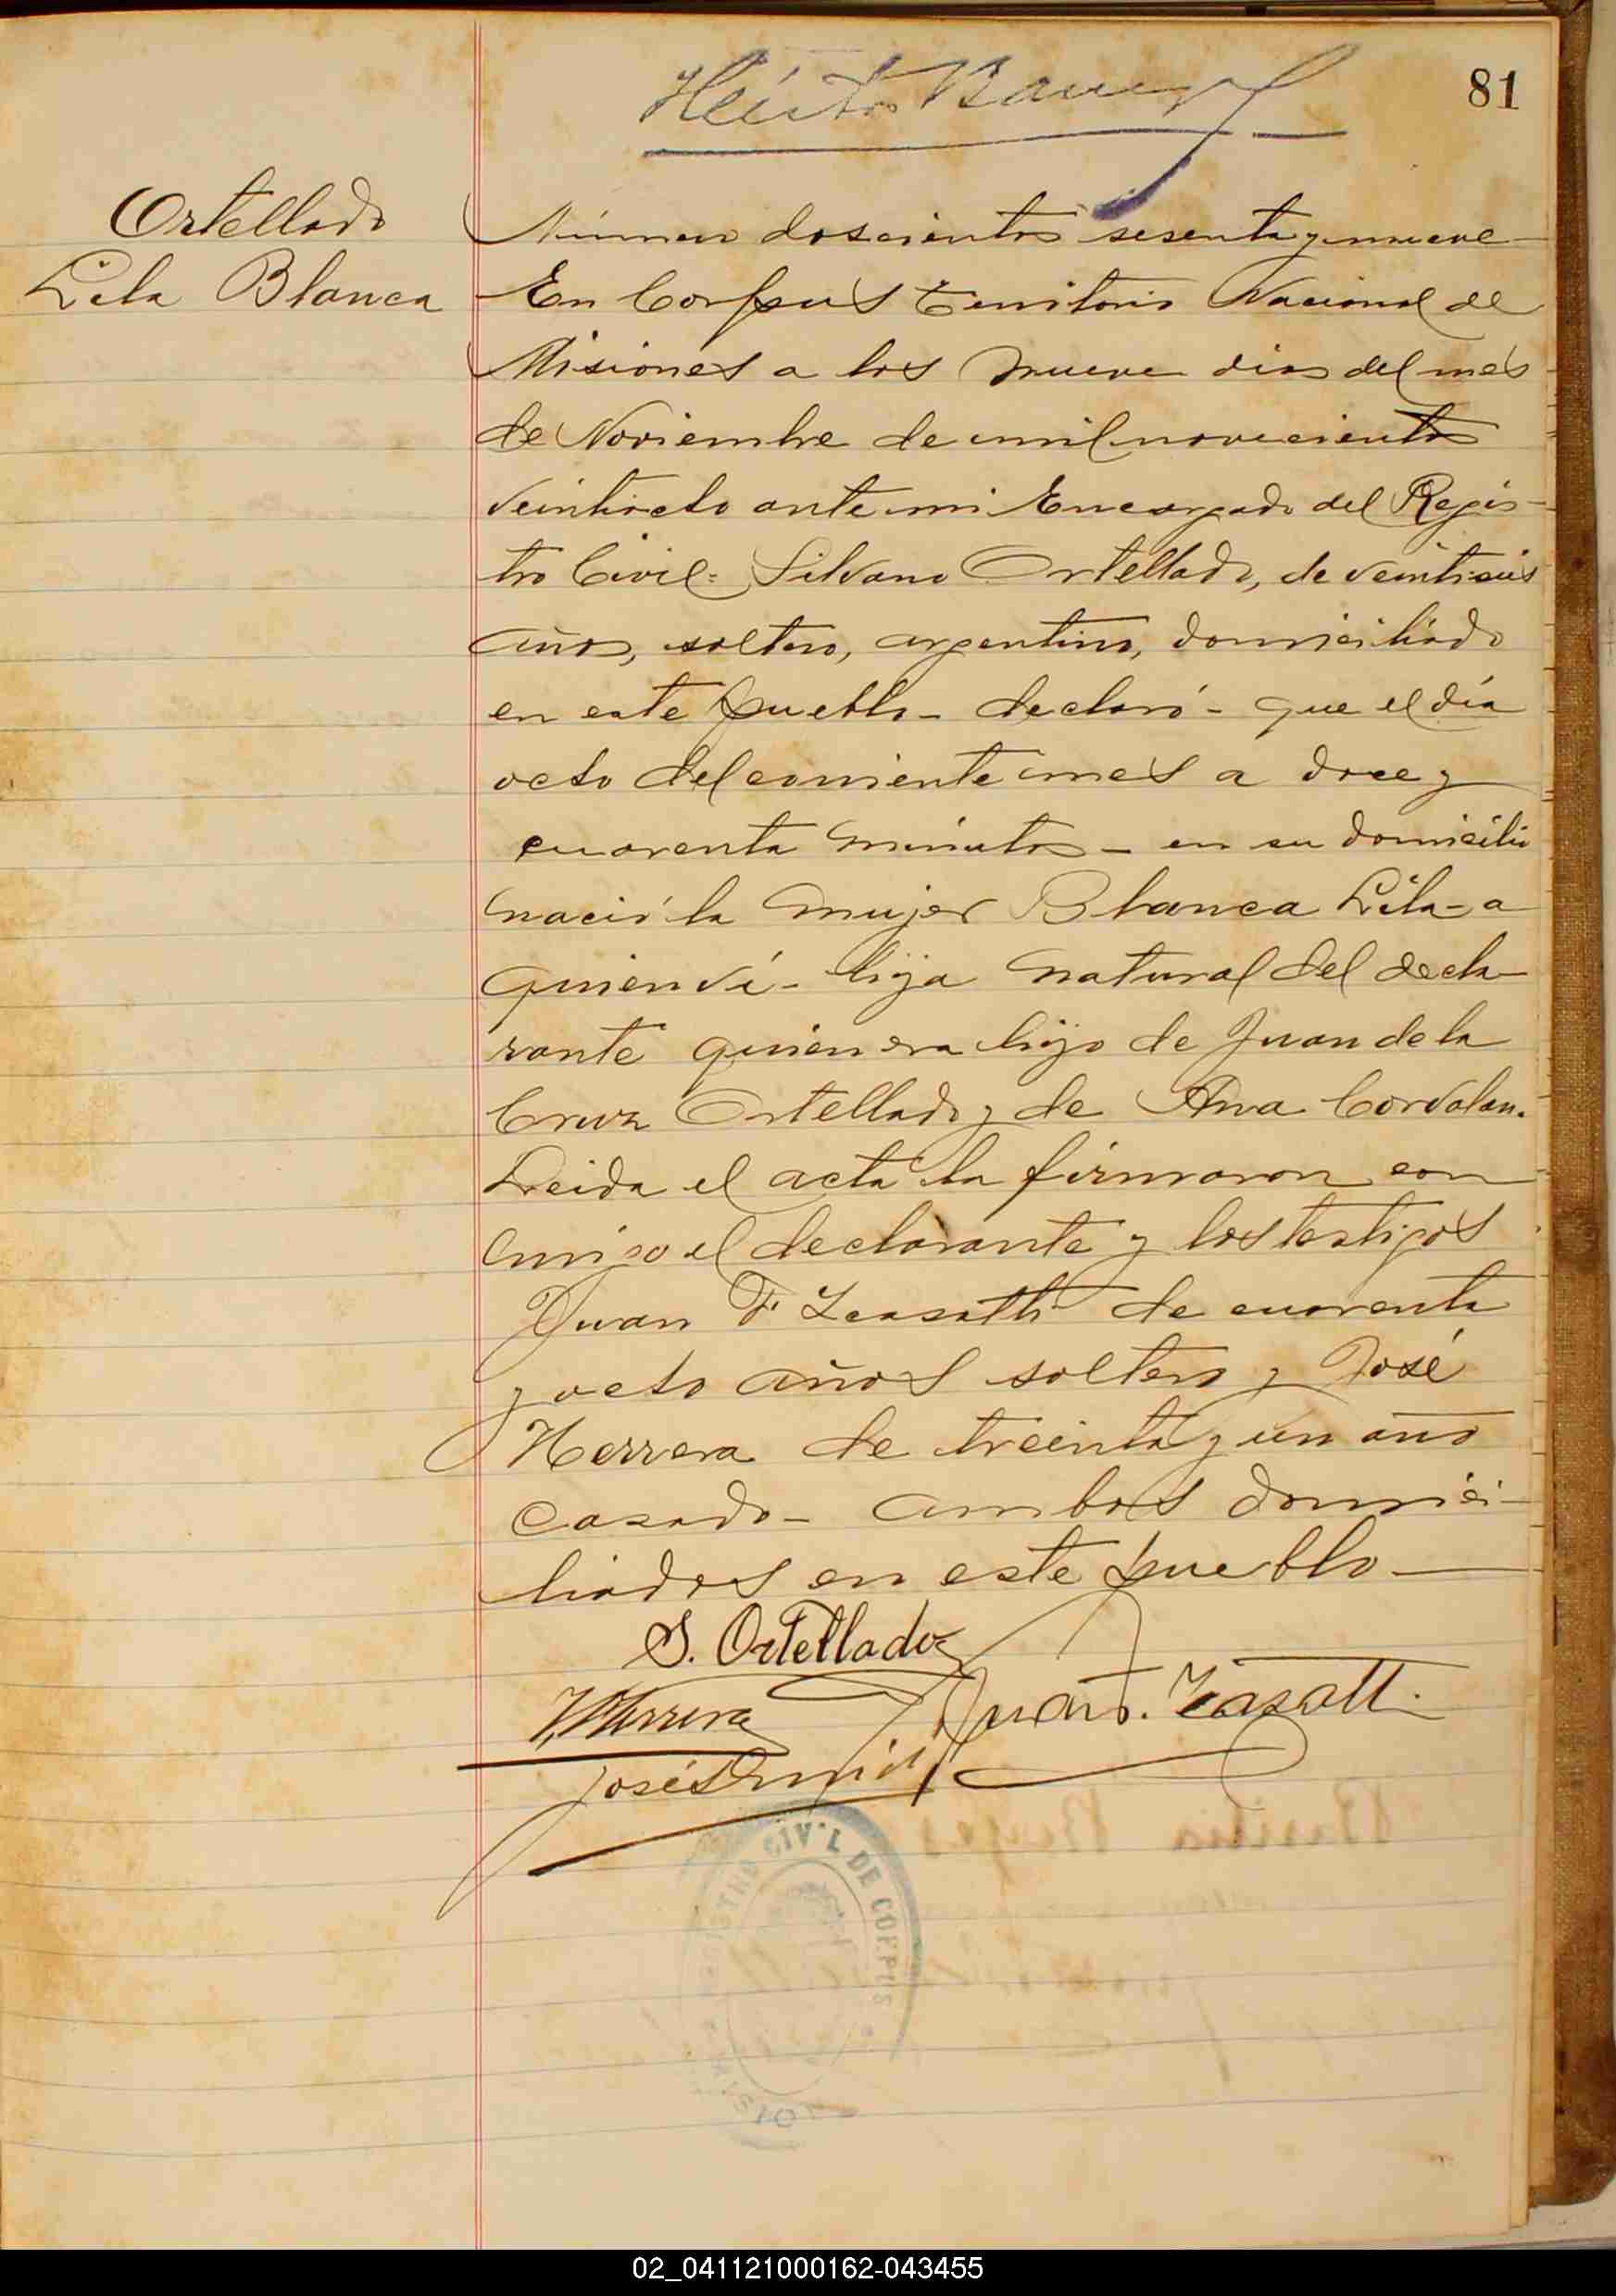 81
Ortellado
Lila Blanca
Número doscientos sesenta y nueve
En Corpus Territorio Nacional de
Misiones a los nueve dias del mes
de Noviembre de mil novecientos
veintiocto ante mi Encargado del Regis-
tro Civil: Silvano Ortellado, de veintiseis
años, soltero, argentino, domiciliado
en este pueblo - declaró - que el día
octo del corriente mes a doce y
cuarenta minutos - en su domicilio
nació la mujer Blanca Lila - a
quien ví - hija natural del decla-
rante quien era hijo de Juan de la
Cruz Ortellado y de Ana Corvalan.
Leida el acta la firmaron con
migo el declarante y los testigos
Juan F de cuarenta
y octo años soltero y José
Herrera de treinta y un año
casado - ambos domici-
liados en este pueblo -
S. Ortellado
J. Herrera
Juan F.
José
REGISTRO CIVIL DE CORPUS
MISIO
02_041121000162-043455